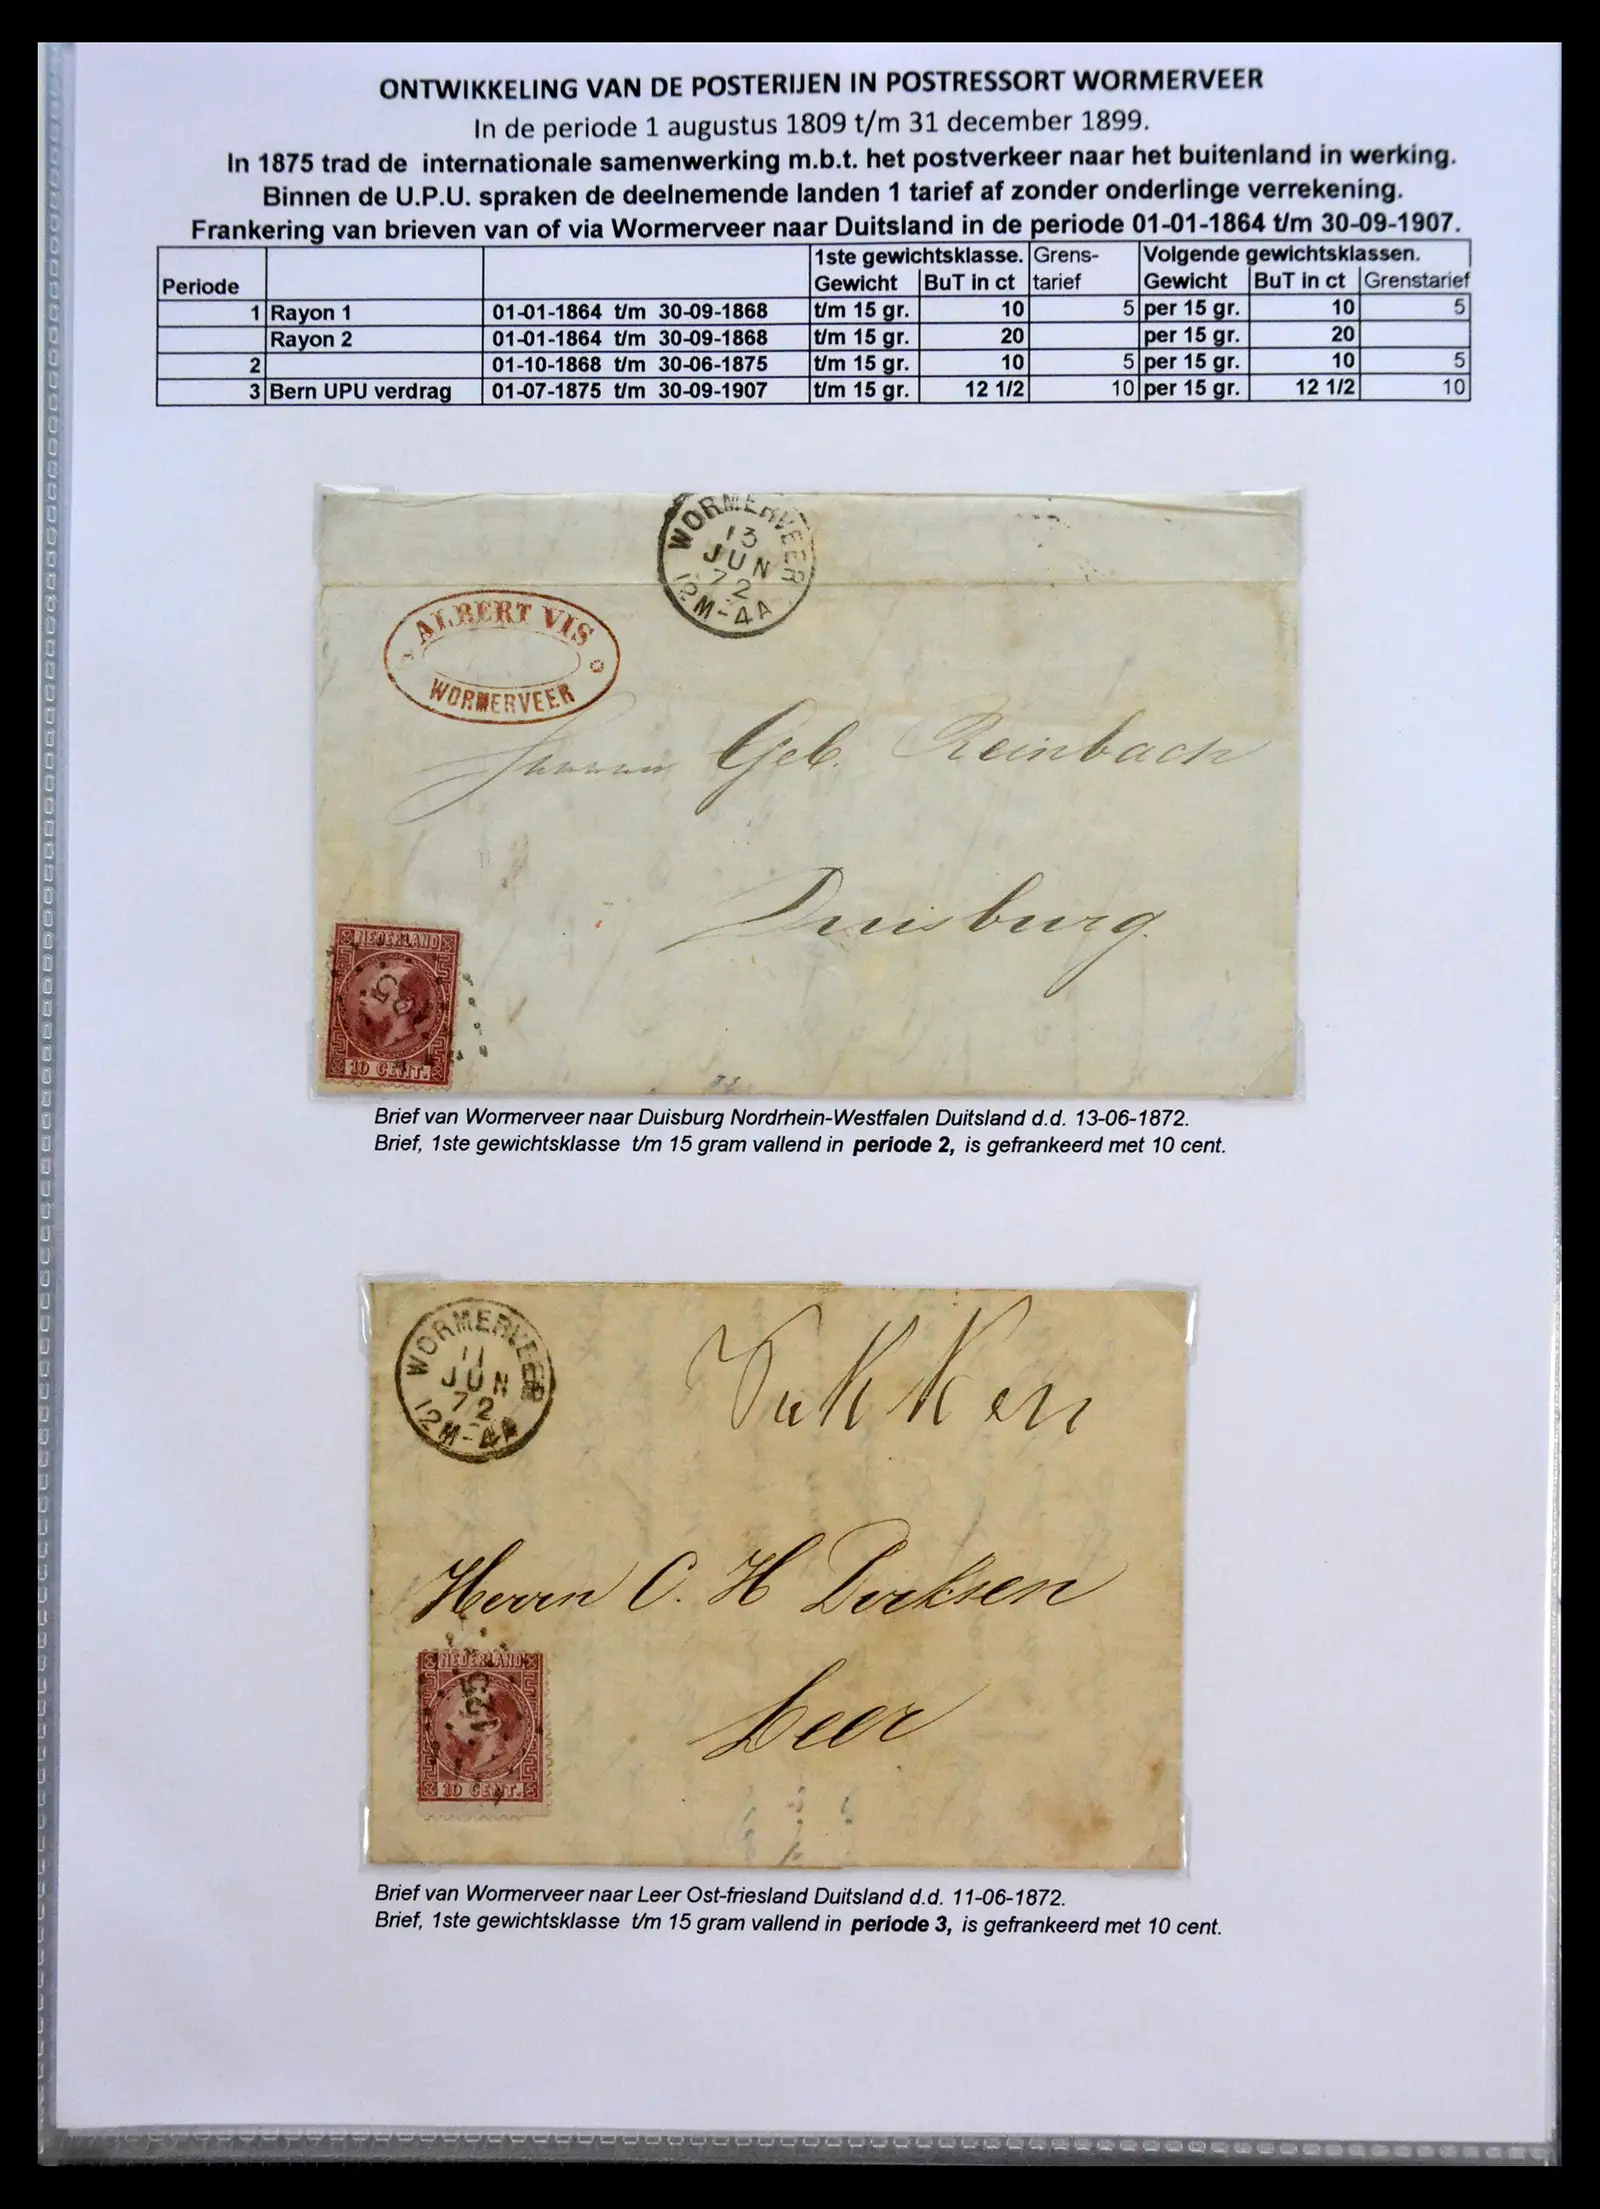 ONTWIKKELING VAN DE POSTERIJEN IN POSTRESSORT WORMERVEER
In de periode 1 augustus 1809 t/m 31 december 1899.
In 1875 trad de internationale samenwerking m.b.t. het postverkeer naar het buitenland in werking.
Binnen de U.P.U. spraken de deelnemende landen 1 tarief af zonder onderlinge verrekening.
Frankering van brieven van of via Wormerveer naar Duitsland in de periode 01-01-1864 t/m 30-09-1907.
1ste gewichtsklasse. Grens- Volgende gewichtsklassen.
Periode Gewicht BuT in ct tarief Gewicht BuT in ct Grenstarief
1 Rayon 1 01-01-1864 t/m 30-09-1868 t/m 15 gr. 10 5 per 15 gr. 10 5
Rayon 2 01-01-1864 t/m 30-09-1868 t/m 15 gr. 20 per 15 gr. 20
2 01-10-1868 t/m 30-06-1875 t/m 15 gr. 10 5 per 15 gr. 10 5
3 Bern UPU verdrag 01-07-1875 t/m 30-09-1907 t/m 15 gr. 12 1/2 10 per 15 gr. 12 1/2 10
WORMERVEER
13
JUN
72
12M-4A
ALBERT VIS
WORMERVEER
Geb. Reinbach
Duisburg
NEDERLAND
10 CENT.
Brief van Wormerveer naar Duisburg Nordrhein-Westfalen Duitsland d.d. 13-06-1872.
Brief, 1ste gewichtsklasse t/m 15 gram vallend in periode 2, is gefrankeerd met 10 cent.
WORMERVEER
11
JUN
72
12M-4A
Herrn C. H Dirksen
Leer
NEDERLAND
125
10 CENT.
Brief van Wormerveer naar Leer Ost-friesland Duitsland d.d. 11-06-1872.
Brief, 1ste gewichtsklasse t/m 15 gram vallend in periode 3, is gefrankeerd met 10 cent.